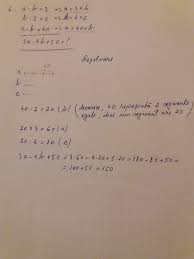 6. a : b = 3 => a = 3 × b
b : c = 2 => b = 2 × c
a - b = 40 => a = 40 + b
3a - 4b + 5c = ?
Rezolvare
a
b
c
40 : 2 = 20 (b) (deoarece, 40 reprezintă 2 segmente
egale, deci un segment are 20)
20 × 3 = 60 (a)
20 : 2 = 10 (c)
3a - 4b + 5c = 3·60 - 4·20 + 5·10 = 180 - 80 + 50 =
= 100 + 50 = 150